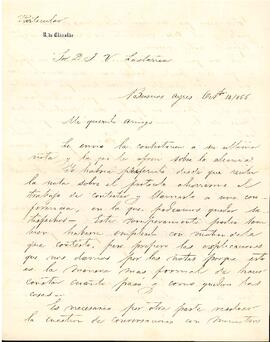 Particular
R. de Elizalde
Sor D. J. V. Lastarria
Buenos Ayres Oct. 14/866
Mi querido amigo
Le envio la contestacion a su ultima
nota y la que le ofreci sobre la alianza
Le habria preferido desde que recibi
la nota sobre el protocolo ahorrarme el
trabajo de contestar y llamarlo a una con-
ferencia, en la que podiamos quedar sa-
tisfechos. Este temperamento podia tam-
bien haberse empleado con motivo de la
que contesto. Pero prefiero las esplicaciones
que nos damos por las notas porque esto
es la manera mas formal de hacer
constar cuanto pasa y como quedan las
cosas.
Es necesario por otra parte realizar
la cuestion de conversaciones con ministros